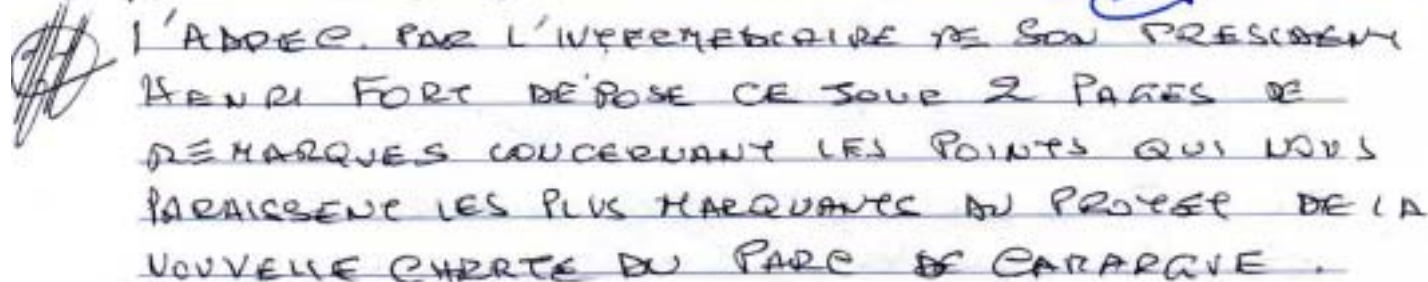 L'ADDEC. PAR L'INTERMEDIAIRE DE SON PRESIDENT
HENRI FORT DÉPOSE CE JOUR 2 PAGES DE
REMARQUES CONCERNANT LES POINTS QUI NOUS
PARAISSENT LES PLUS MARQUANTS DU PROJET DE LA
NOUVELLE CHARTE DU PARC DE CAMARGUE.